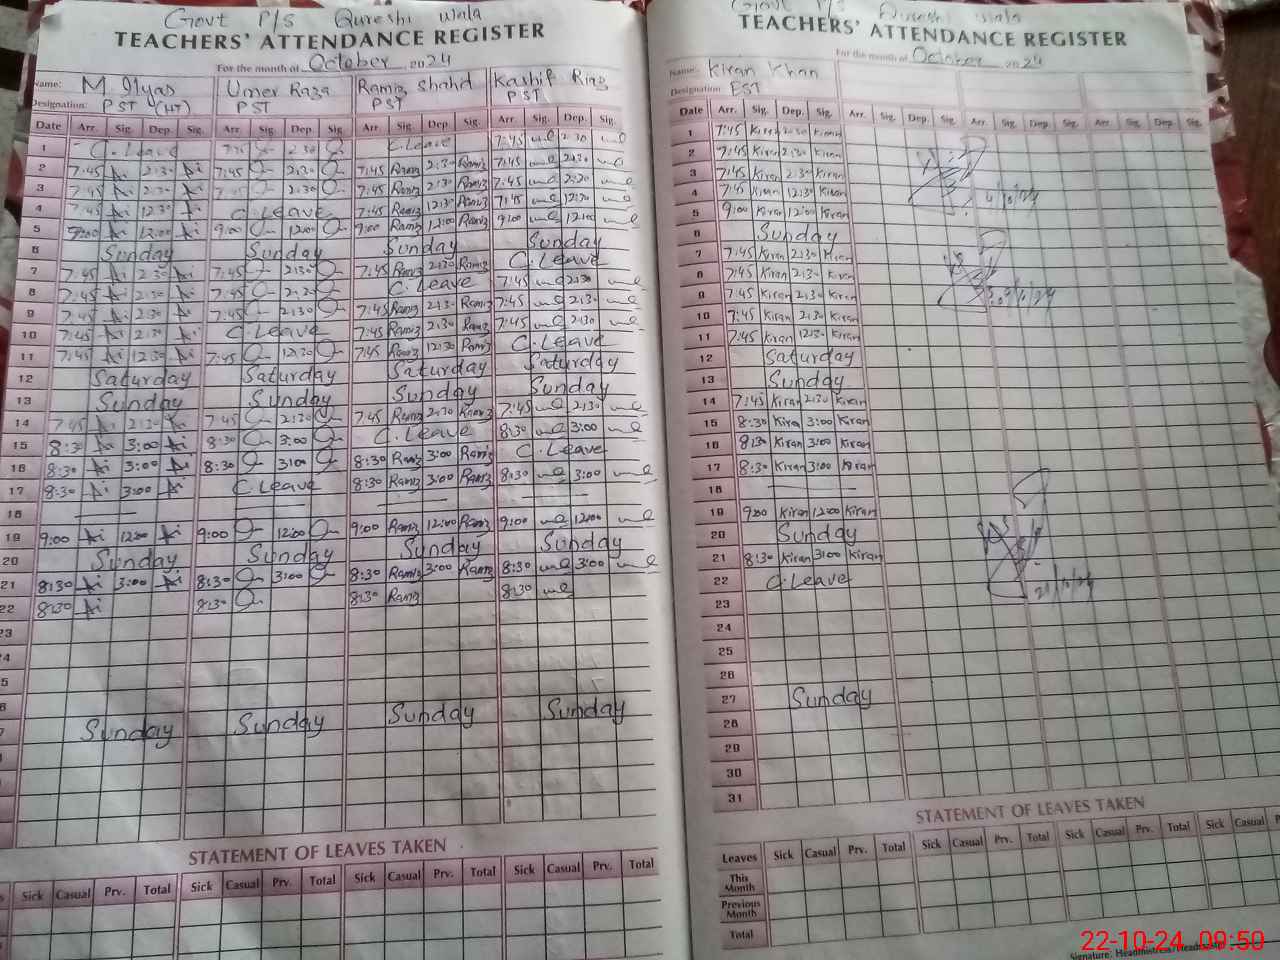 Govt P/S Qureshi Wala
TEACHERS' ATTENDANCE REGISTER
For the month of October 2024
Name: M. Ilyas Umer Raza Ramiz Shahid Kashif Riaz
Designation: PST (HT) PST PST PST
Date Arr. Sig. Dep. Sig. Arr. Sig. Dep. Sig. Arr. Sig. Dep. Sig. Arr. Sig. Dep. Sig.
1 C.Leave 2:30 C.Leave 7:45 2:30
2 7:45 2:30 7:45 2:30 7:45 Ramiz 2:30 Ramiz 7:45 2:30
3 7:45 2:30 2:30 7:45 Ramiz 2:30 Ramiz 7:45
4 7:45 12:30 C.Leave 7:45 Ramiz 12:30 Ramiz 7:45 12:30
5 9:00 12:00 9:00 12:00 9:00 Ramiz 12:00 Ramiz 9:00 12:00
6 Sunday Sunday Sunday Sunday
7 7:45 2:30 7:45 2:30 7:45 Ramiz 2:30 Ramiz C.Leave
8 7:45 2:30 7:45 2:30 C.Leave 7:45 2:30
9 7:45 2:30 7:45 2:30 7:45 Ramiz 2:30 Ramiz 7:45 2:30
10 7:45 2:30 C.Leave 7:45 Ramiz 2:30 Ramiz 7:45 2:30
11 7:45 12:30 7:45 12:30 7:45 Ramiz 12:30 Ramiz C.Leave
12 Saturday Saturday Saturday Saturday
13 Sunday Sunday Sunday Sunday
14 7:45 2:30 7:45 2:30 7:45 Ramiz 2:30 Ramiz 7:45 2:30
15 8:30 3:00 8:30 3:00 C.Leave 8:30 3:00
16 8:30 3:00 8:30 3:00 8:30 Ramiz 3:00 Ramiz C.Leave
17 8:30 3:00 C.Leave 8:30 Ramiz 3:00 Ramiz 8:30 3:00
18
19 9:00 12:00 9:00 12:00 9:00 Ramiz 12:00 Ramiz 9:00 12:00
20 Sunday Sunday Sunday Sunday
21 8:30 3:00 8:30 3:00 8:30 Ramiz 3:00 Ramiz 8:30 3:00
22 8:30 8:30 8:30 Ramiz 8:30
23
Sunday Sunday Sunday Sunday
STATEMENT OF LEAVES TAKEN
Sick Casual Prv. Total Sick Casual Prv. Total Sick Casual Prv. Total Sick Casual Prv. Total
Govt P/S Qureshi Wala
TEACHERS' ATTENDANCE REGISTER
For the month of October 2024
Name: Kiran Khan
Designation: EST
Date Arr. Sig. Dep. Sig. Arr. Sig. Dep. Sig. Arr. Sig. Dep. Sig. Arr. Sig. Dep. Sig.
1 7:45 Kiran 2:30 Kiran
2 7:45 Kiran 2:30 Kiran
3 7:45 Kiran 2:30 Kiran
4 7:45 Kiran 12:30 Kiran
5 9:00 Kiran 12:00 Kiran
6 Sunday
7 7:45 Kiran 2:30 Kiran
8 7:45 Kiran 2:30 Kiran
9 7:45 Kiran 2:30 Kiran
10 7:45 Kiran 2:30 Kiran
11 7:45 Kiran 12:30 Kiran
12 Saturday
13 Sunday
14 7:45 Kiran 2:30 Kiran
15 8:30 Kiran 3:00 Kiran
16 8:30 Kiran 3:00 Kiran
17 8:30 Kiran 3:00 Kiran
18
19 9:00 Kiran 12:00 Kiran
20 Sunday
21 8:30 Kiran 3:00 Kiran
22 C.Leave
23
24
25
26
27 Sunday
28
29
30
31
STATEMENT OF LEAVES TAKEN
Leaves Sick Casual Prv. Total Sick Casual Prv. Total Sick Casual Prv. Total Sick Casual
This Month
Previous Month
Total
Signature: Headmistress/Headmaster
22-10-24 09:50